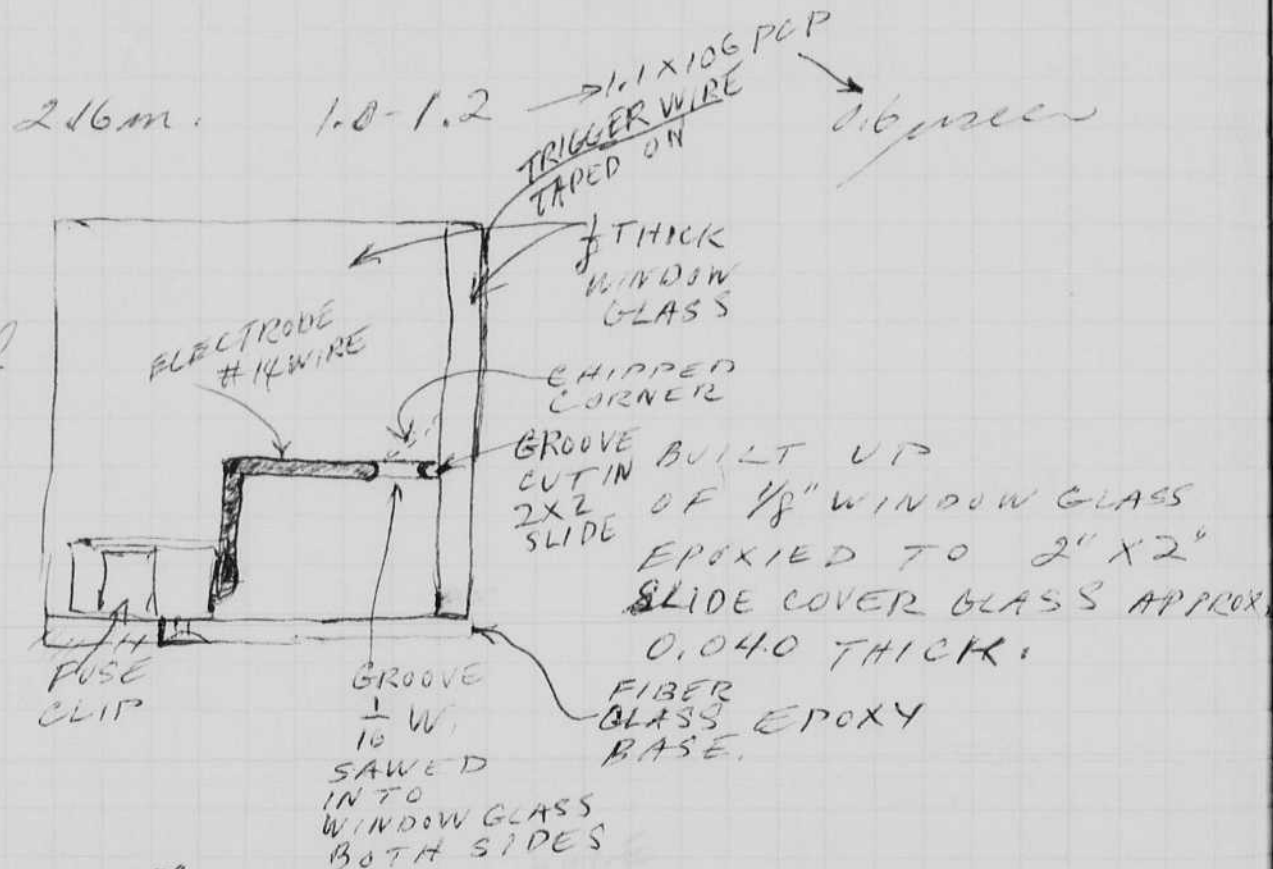 1.0-1.2
TRIGGER WIRE
TAPED ON
THICK
WINDOW
GLASS
ELECTRODE
#14 WIRE
CHIPPED
CORNER
GROOVE
CUT IN
2X2
SLIDE
BUILT UP
OF 1/8" WINDOW GLASS
EPOXIED TO 2" X 2"
SLIDE COVER GLASS APPROX.
0.040 THICK.
FUSE
CLIP
GROOVE
1/16 W.
SAWED
INTO
WINDOW GLASS
BOTH SIDES
FIBER
GLASS EPOXY
BASE.